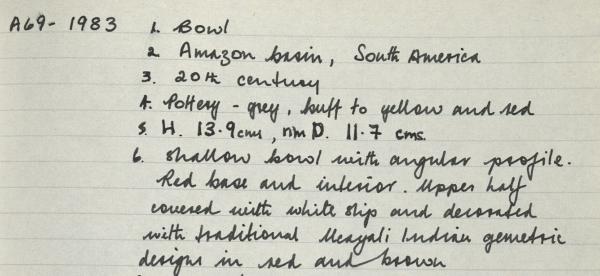 A69-1983 1. Bowl
2. Amazon basin, South America
3. 20th century
4. Pottery - grey, buff to yellow and red
5. H. 13.9cms, rim D. 11.7 cms.
6. Shallow bowl with angular profile.
Red base and interior. Upper half
covered with white slip and decorated
with traditional Ucayali Indian gemetric
designs in red and brown